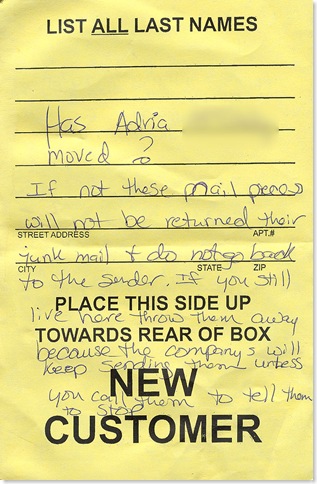 LIST ALL LAST NAMES
Has Adria
moved ?
If not these mail pieces
will not be returned their
STREET ADDRESS APT.#
junk mail & do not go back
CITY STATE ZIP
to the sender. If you still
PLACE THIS SIDE UP
live here throw them away
TOWARDS REAR OF BOX
because the company's will
keep sending them unless
NEW
you call them to tell them
to stop
CUSTOMER